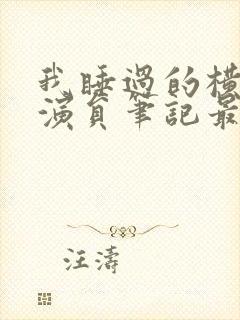 我睡過的橫
演員筆記最
汪濤